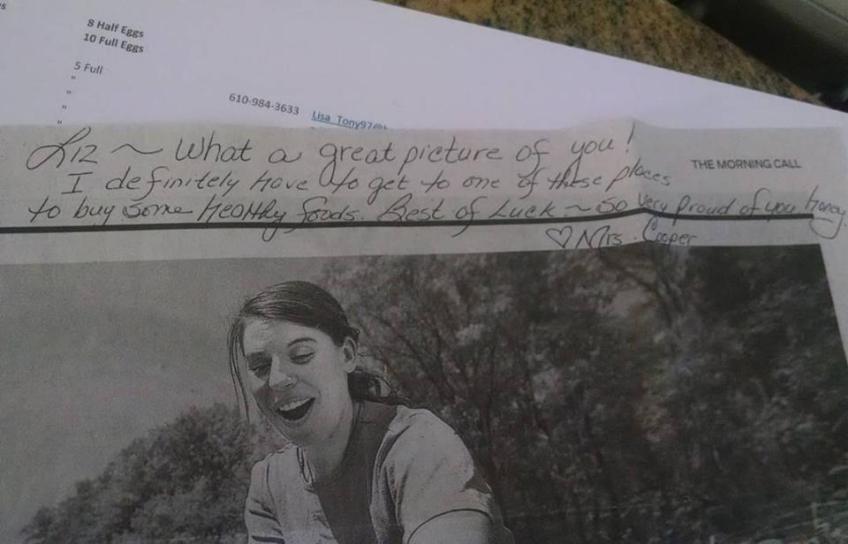 s
8 Half Eggs
10 Full Eggs
5 Full
"
"
"
"
610-984-3633 Lisa_Tony97@
Liz ~ What a great picture of you!
THE MORNING CALL
I definitely have to get to one of these places
to buy some Healthy foods. Best of Luck ~ So very proud of you honey.
♡ Mrs. Cooper